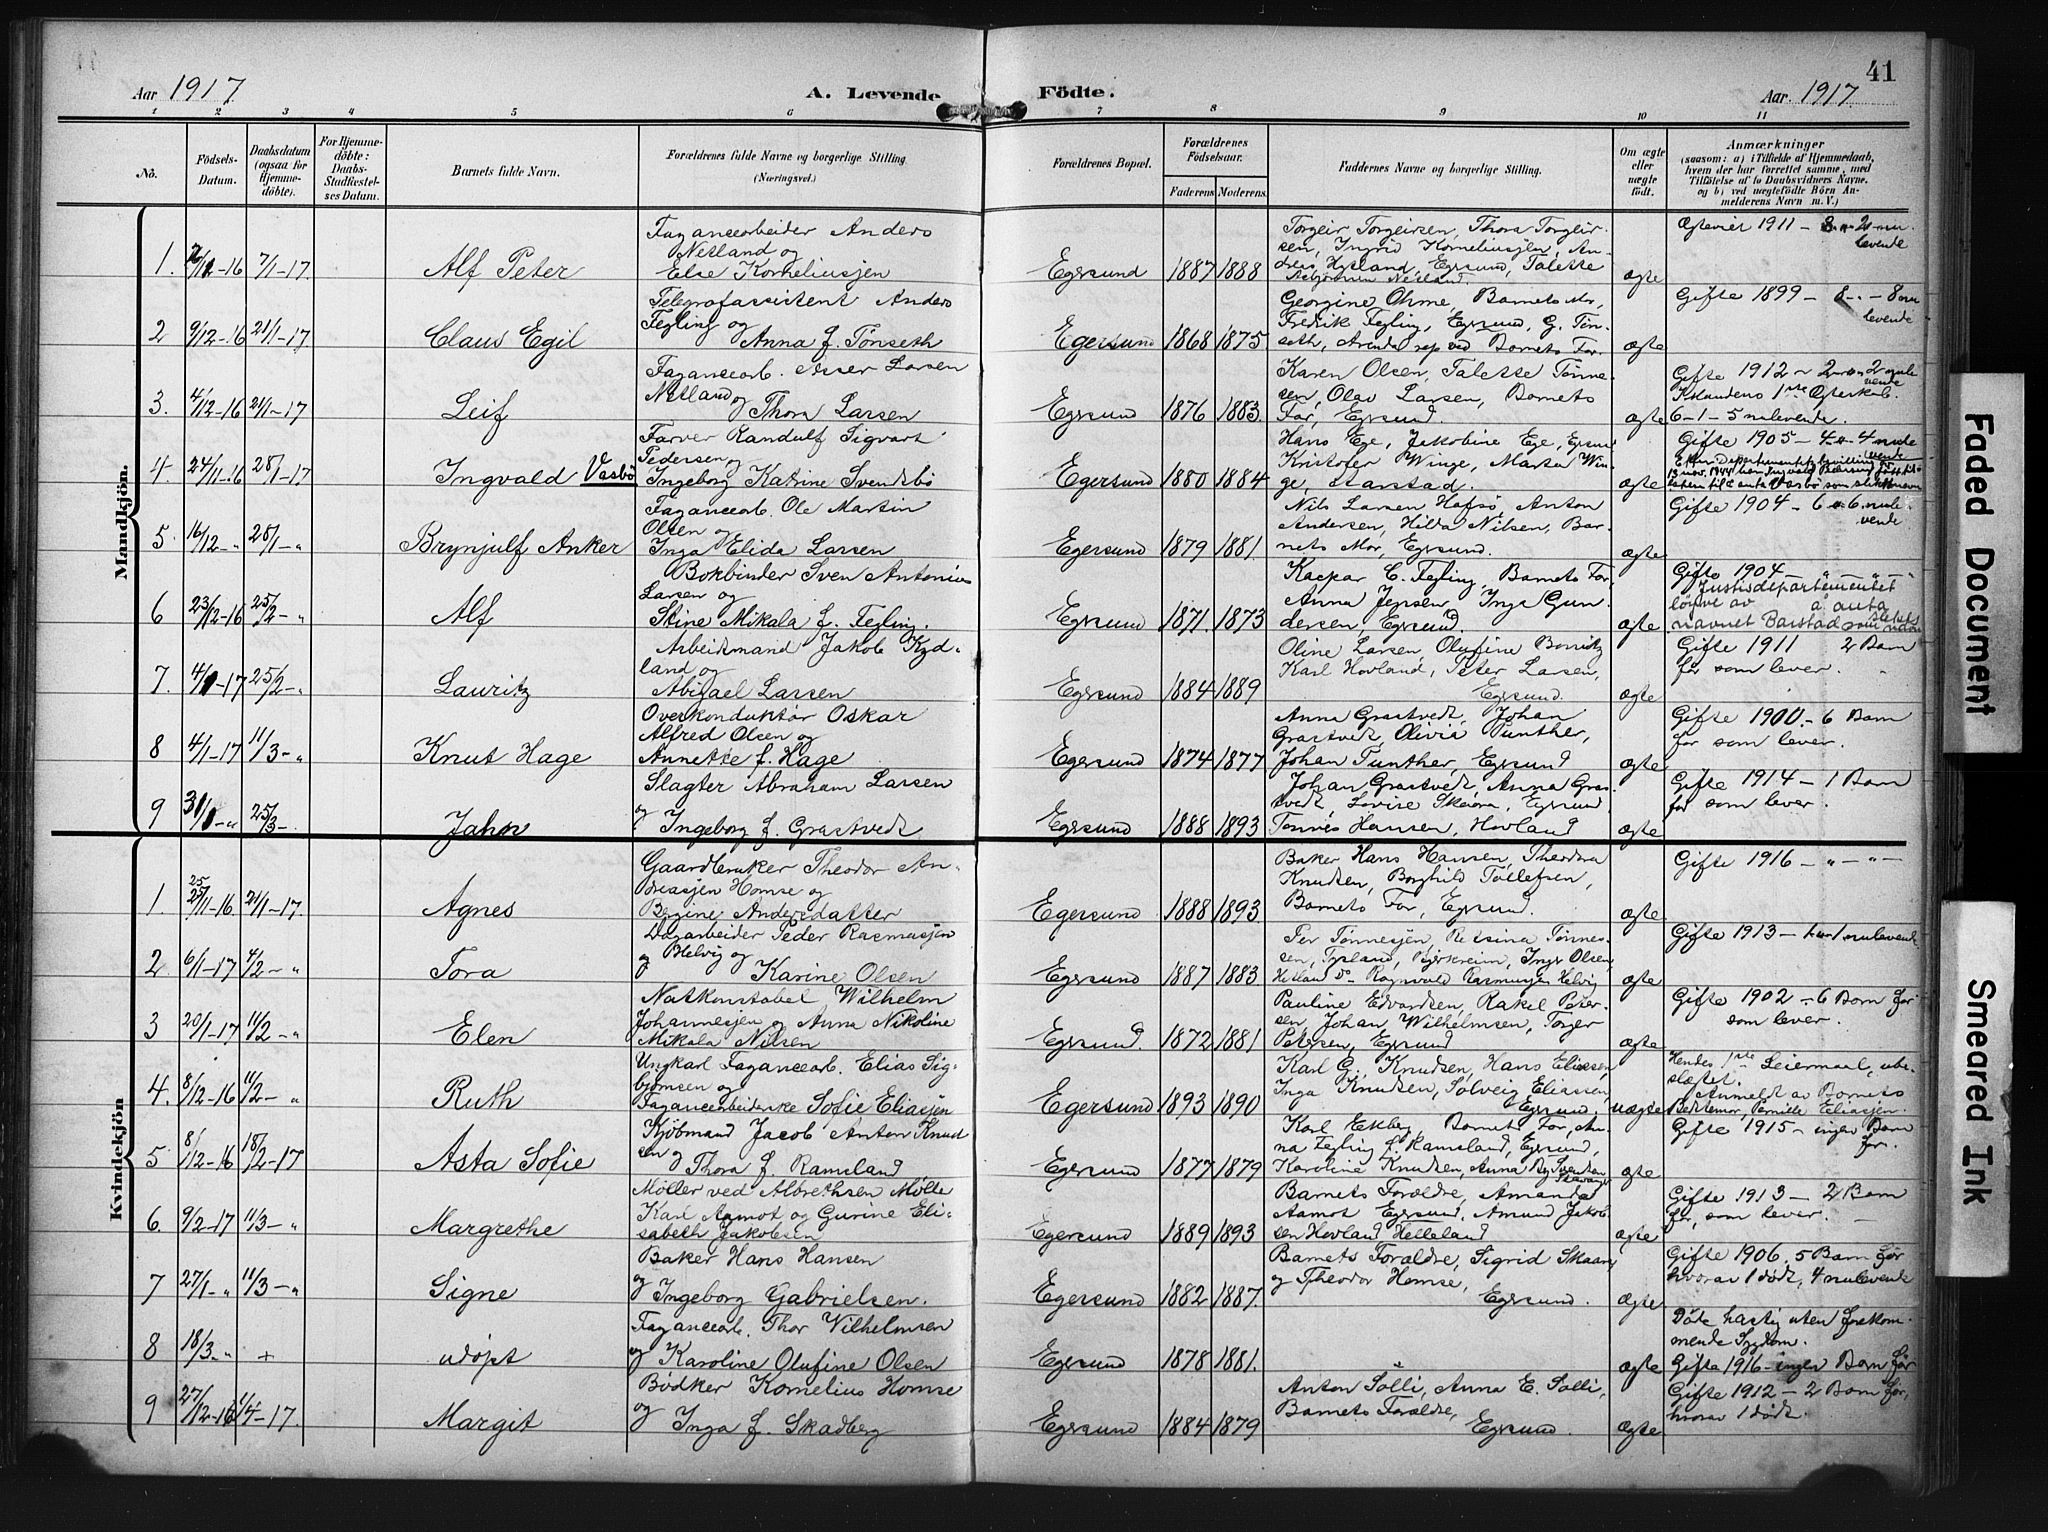 41
Aar 1917.
A. Levende Födte.
Aar. 1917
1 2 3 4 5 6 7 8 9 10 11
No.
Födsels-Datum.
Daabsdatum (ogsaa for Hjemmedöbte).
For Hjemmedöbte: Daabs-Stadfæstelses Datum.
Barnets fulde Navn.
Forældrenes fulde Navne og borgerlige Stilling. (Næringsvei.)
Forældrenes Bopæl.
Forældrenes Födselsaar.
Faderens Moderens.
Faddernes Navne og borgerlige Stilling.
Om ægte eller uægte födt.
Anmærkninger
(saasom: a) i Tilfælde af Hjemmedaab, hvem der har forrettet samme, med Tilföielse af to Daabsvidners Navne, og b) ved uægtefödte Börn Anmelderens Navn m. V.)
Mandkjön.
1. 7/1-17. Alf Peter
Fayancearbeider Anders
Netland og
Else Korneliusjen
Egersund 1887 1888
Torgeir Torgeirsen, Thora Torgeirsen, Ingrid Korneliusjen,
Netland.
ægte
1911 – levende
2 9/12-16 21/1-17. Claus Egil
Telegrafassistent Anders
Fegling og
Anna f. Tönseth
Egersund 1868 1875
Georgine Ohme, Barnets Mor,
Fredrik Fegling, Egersund, G. Tönseth, Arendal rep ved Barnets Far.
ægte
Gifte 1899 – levende
3. 4/12-16 21/1-17 Leif
Fayancearb. Larsen
Netland og
Thora Larsen
Egersund 1876 1883.
Karen Olsen, Talette Tönnesen, Olav Larsen, Barnets
Far, Egersund.
ægte
Gifte 1912 –
6-1-5 nulevende.
4. 24/11-16 28/1-17 Ingvald Vasbö
Farver Randulf Sigvart
Pedersen og
Ingeborg Katrine Svendsbö
Egersund 1880 1884
Hans Ege, Jakobine Ege, Egersund
Kristofer Winge, Marta Winge,
ægte
Gifte 1905 –
5. 16/12-" 28/1-" Brynjulf Anker
Fayancearb. Ole Martin
Olsen og
Inga Elida Larsen
Egersund 1879 1881.
Nils Larsen Hafsö, Anton
Andersen, Hilda Nilsen, Barnets Mor, Egersund.
ægte
Gifte 1904 –
6 23/12-16 25/2-" Alf
Bokbinder Sven Antonius
Larsen og
Stine Mikala f. Fegling.
Egersund 1871. 1873
Kaspar C. Fegling, Barnets Far,
Anna Jensen, Inga Gundersen, Egersund.
ægte
Gifte 1904 –
Justisdepartementet
löyve av å anta
navnet Barstad som
7. 25/2-" Lauritz
Arbeidsmand Jakob Kydland og
Abigael Larsen
Egersund 1884 1889
Oline Larsen, Olufine
Karl Hovland, Peter Larsen,
Egersund.
ægte
Gifte 1911 2 Barn
för som lever.
8 4/1-17 11/3-" Knut Hage
Overkonduktör Oskar
Alfred Olsen og
Annette f. Hage
Egersund 1874 1877
Anna Grastvedt, Johan
Grastvedt, Olivia Tunther,
Johan Tunther, Egersund
ægte
Gifte 1900. – 6 Barn
för som lever.
9 25/3-. Jahn
Slagter Abraham Larsen
og Ingeborg f. Grastvedt
Egersund 1888 1893
Johan Grastvedt, Anna Grastvedt, Lovise Skaara, Egersund
Tönnes Hansen, Hovland
ægte
Gifte 1914 – 1 Barn
för som lever.
Kvindekjön
1. 25/11-16 21/1-17. Agnes
Gaardbruker Theodor Andreasjen Homse og
Bergine Andersdatter
Egersund 1888 1893
Baker Hans Hansen, Theodora
Knudsen, Borghild Tollefsen,
Barnets Far, Egersund.
ægte
Gifte 1916 – " – " –
2. 6/1-17 4/2-" Tora
Dagarbeider Peder Rasmusjen
Helvig og
og Karine Olsen
Egersund 1887 1883
Per Tönnesjen, Retsina Tönnesen, Tysland, Bjerkreim, Inger Olsen,
Hetland Do Ragnvald Rasmusjen Helvig
ægte
Gifte 1913 – nulevende
3 20/1-17 11/2-" Elen
Natkonstabel Wilhelm
Johannesjen og Anna Nikoline
Mikala Nilsen
Egersund. 1872 1881
Pauline Edvardsen, Rakel Petersen, Johan Wilhelmsen, Torger
Petersen, Egersund
ægte
Gifte 1902 – 6 Barn för
som lever.
4. 8/12-16 11/2-" Ruth
Ungkarl Fayancearb. Elias Sigbjörnsen og
Fayancearbeiderske Sofie Eliasjen
Egersund 1893 1890
Karl G. Knudsen, Hans Eliassen,
Inga Knudsen, Solveig Eliassen
Egersund.
uægte
Hendes 1ste Leiermaal, ubeslægtet.
Anmeldt av Barnets
Bedstemor, Pernille Eliasjen.
5. 8/12-16 18/2-17 Asta Sofie
Kjöbmand Jacob Anton Knudsen
og Thora f. Ramsland
Egersund 1877 1879
Karl Ekberg, Barnets Far, Anna Fegling f. Ramsland, Egersund,
Karoline Knudsen, Anna By Svendsen
Stavanger
ægte
Gifte 1915 – ingen Barn
för.
6. 9/2-17 11/3-" Margrethe
Möller ved Albrethsen Mölle
Karl Aamot og Gurine Elisabeth Jakobsen
Egersund 1889 1893
Barnets Forældre, Amanda
Aamot Egersund, Amund Jakobsen Hovland Helleland
ægte
Gifte 1913 – 2 Barn
för, som lever.
7 27/1-" 11/3-" Signe
Baker Hans Hansen
og Ingeborg Gabrielsen.
Egersund 1882 1887.
Barnets Forældre, Sigrid Skaare,
og Theodor Homse,
Egersund.
ægte
Gifte 1906. 5 Barn för
hvorav 1 död, 4 nulevende
8 18/3-" + udöpt
Fayancearb. Thor Vilhelmsen
og Karoline Olufine Olsen
Egersund 1878 1881.
"
ægte
Döde hastig uten forekommende Sygdom.
Gifte 1916 – ingen Barn för
9 27/12-16 1/4-17. Margit
Bödker Kornelius Homse
og Inga f. Skadberg
Egersund 1884 1879
Anton Solli, Anna E. Solli,
Barnets Forældre,
Egersund.
ægte
Gifte 1912 – 2 Barn för,
hvorav 1 död.
Faded Document
Smeared Ink